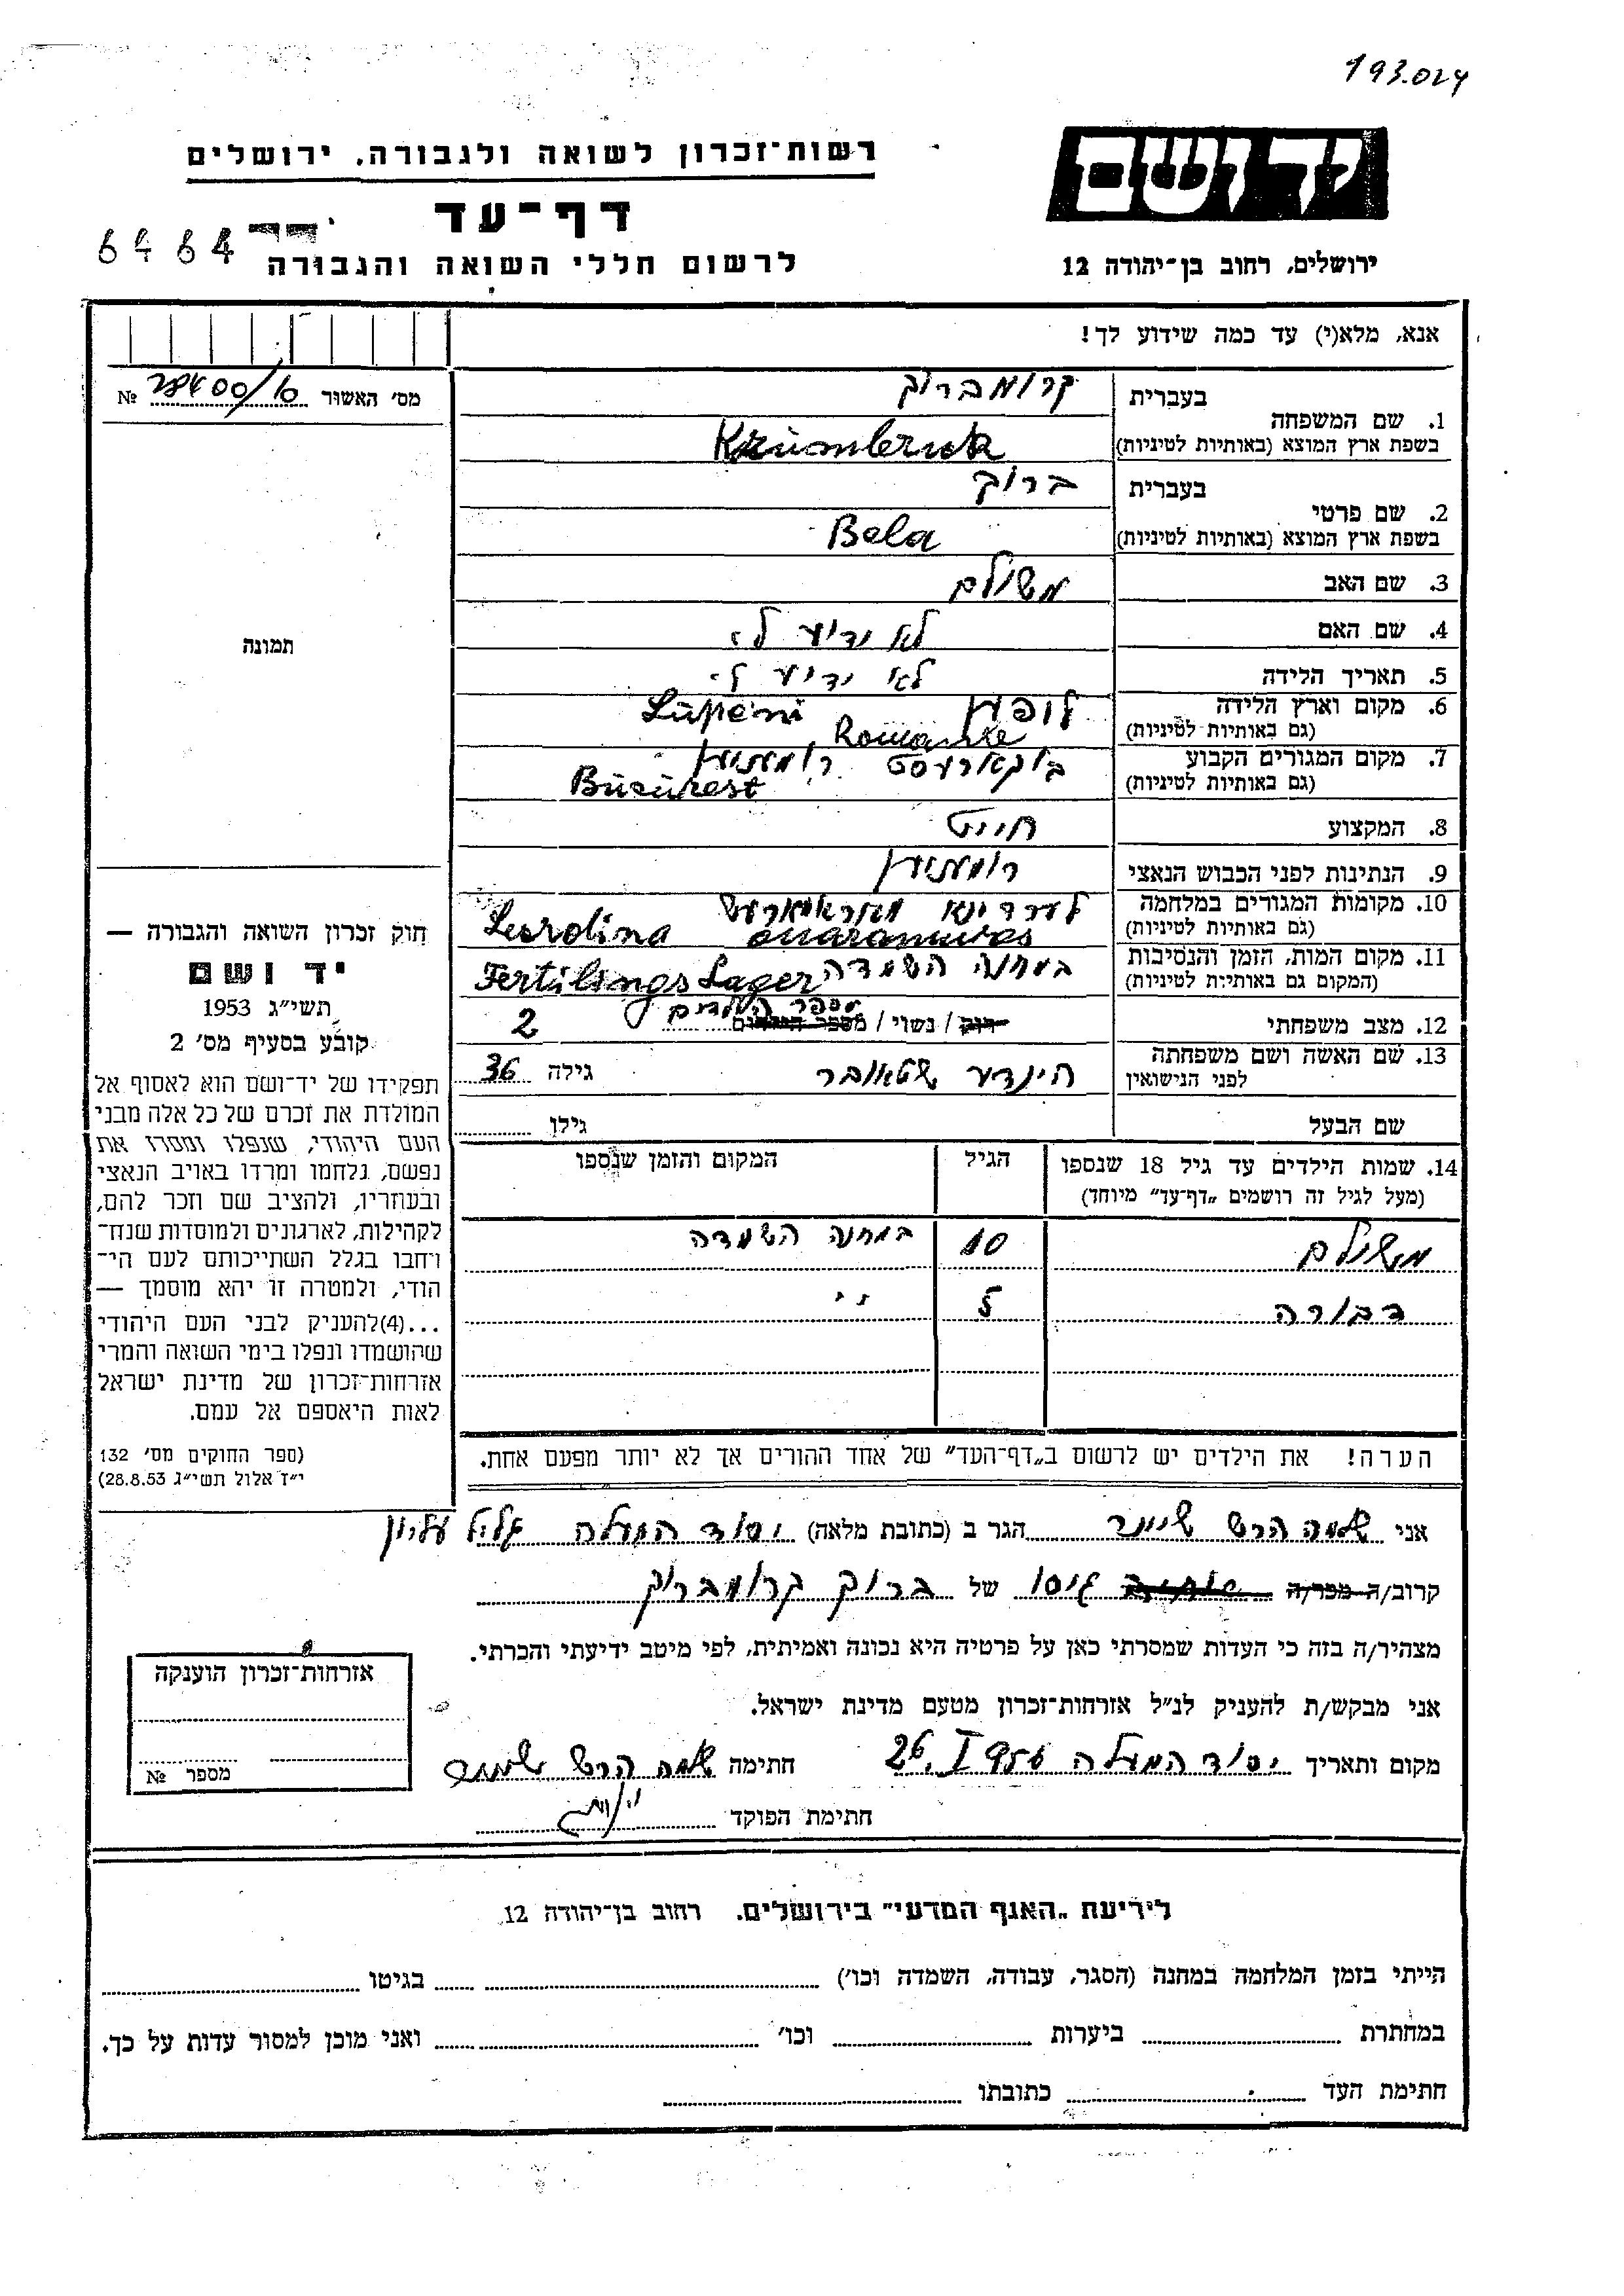 193.024
יד ושם
רשות-זכרון לשואה ולגבורה, ירושלים
דף-עד
6464
לרשום חללי השואה והגבורה
ירושלים, רחוב בן-יהודה 12
אנא, מלא(י) עד כמה שידוע לך!
מס׳ האשור 28400/10 №
1. שם המשפחה
בעברית קרומברוק
בשפת ארץ המוצא (באותיות לטיניות) Krümbruck
2. שם פרטי
בעברית ברוך
בשפת ארץ המוצא (באותיות לטיניות) Bela
3. שם האב משולם
4. שם האם לא ידיע לי
תמונה
5. תאריך הלידה לא ידיע לי
6. מקום וארץ הלידה Lüpeni
(גם באותיות לטיניות)
7. מקום המגורים הקבוע בוקארעסט
(גם באותיות לטיניות) Bücürest
8. המקצוע חייט
9. הנתינות לפני הכבוש הנאצי
10. מקומות המגורים במלחמה
(גם באותיות לטיניות) Lerdina
11. מקום המות, הזמן והנסיבות במחנה השמדה
(המקום גם באותיות לטיניות) Fertilings Lager
12. מצב משפחתי רוק / נשוי / מספר הילדים מספר הילדים 2
13. שם האשה ושם משפחתה הינדע שטאובר גילה 36
לפני הנישואין
שם הבעל גילו
14. שמות הילדים עד גיל 18 שנספו הגיל המקום והזמן שנספו
(מעל לגיל זה רושמים „דף-עד” מיוחד)
משולם 10 במחנה השמדה
דבורה 5 ״
הערה! את הילדים יש לרשום ב„דף-העד” של אחד ההורים אך לא יותר מפעם אחת.
חוק זכרון השואה והגבורה —
יד ושם
תשי״ג 1953
קובע בסעיף מס׳ 2
תפקידו של יד-ושם הוא לאסוף אל
המולדת את זכרם של כל אלה מבני
העם היהודי, שנפלו ומסרו את
נפשם, נלחמו ומרדו באויב הנאצי
ובעוזריו, ולהציב שם וזכר להם,
לקהילות, לארגונים ולמוסדות שנח-
רבו בגלל השתייכותם לעם הי-
הודי, ולמטרה זו יהא מוסמך —
...(4)להעניק לבני העם היהודי
שהושמדו ונפלו בימי השואה והמרי
אזרחות-זכרון של מדינת ישראל
לאות היאספם אל עמם.
(ספר החוקים מס׳ 132
י״ז אלול תשי״ג 28.8.53)
אני שלמה הרש הגר ב (כתובת מלאה) יסוד המעלה גליל עליון
קרוב/ה מכר/ה גיסו של ברוך קרומברוק
מצהיר/ה בזה כי העדות שמסרתי כאן על פרטיה היא נכונה ואמיתית, לפי מיטב ידיעתי והכרתי.
אני מבקש/ת להעניק לנ״ל אזרחות-זכרון מטעם מדינת ישראל.
מקום ותאריך יסוד המעלה 26.I 956 חתימה שלמה הרש
חתימת הפוקד
אזרחות-זכרון הוענקה
מספר №
לידיעת „האגף המדעי” בירושלים, רחוב בן-יהודה 12
הייתי בזמן המלחמה במחנה (הסגר, עבודה, השמדה וכו׳) בגיטו
במחתרת ביערות וכו׳ ואני מוכן למסור עדות על כך.
חתימת העד כתובתו